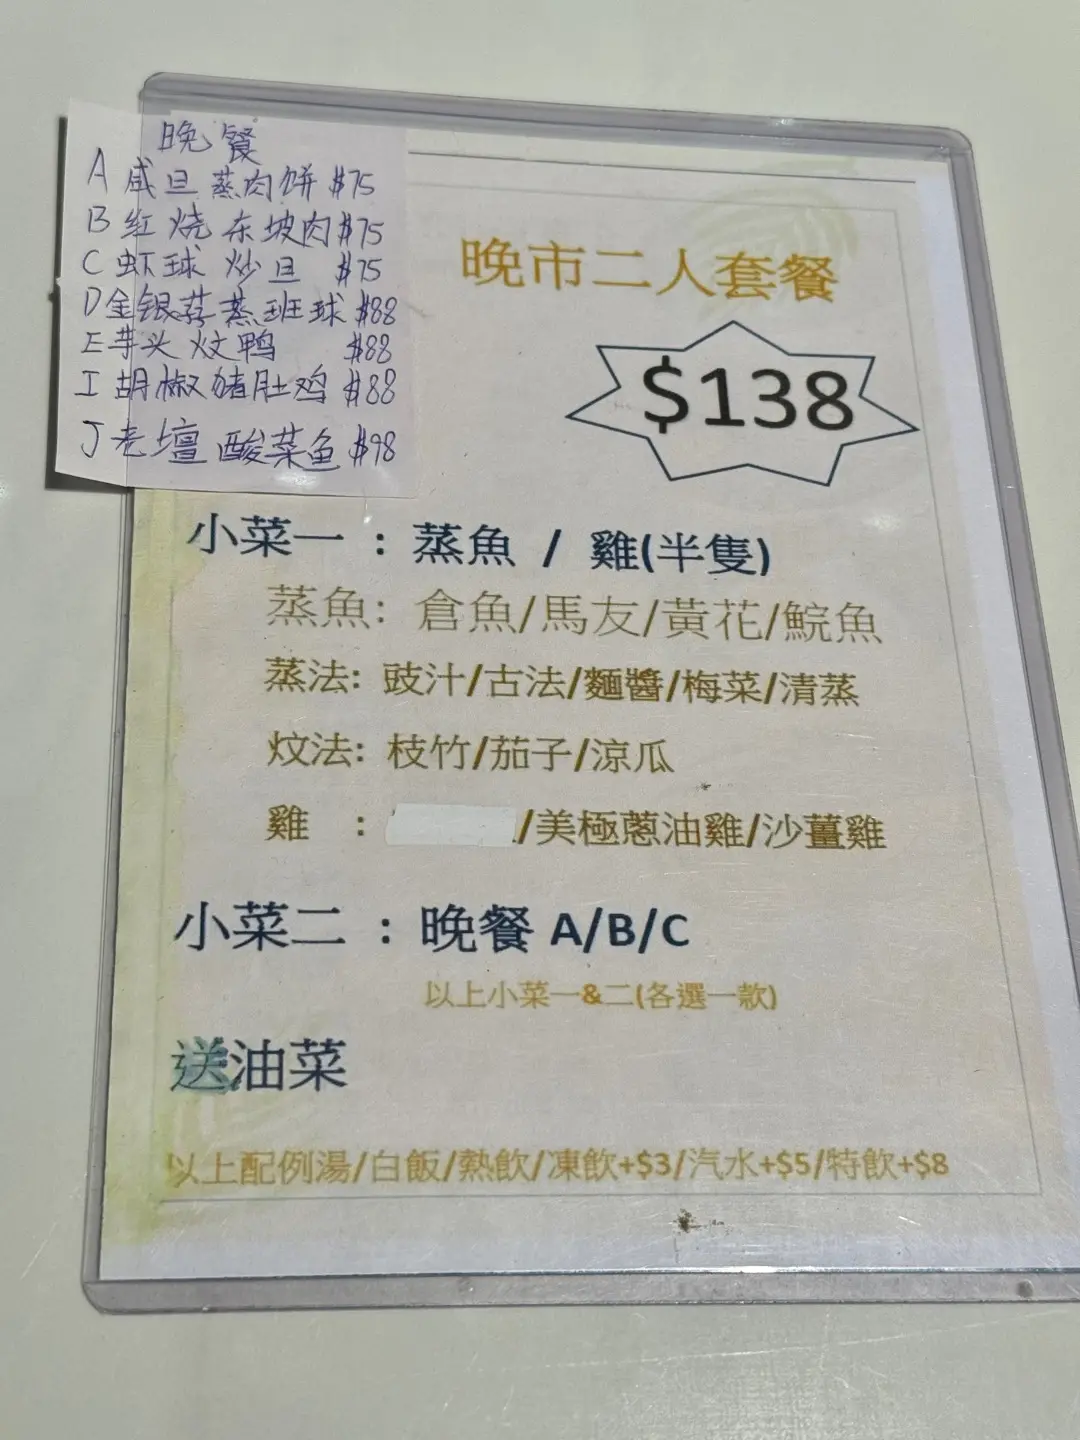 晚餐
A 咸旦蒸肉饼 $75
B 红烧东坡肉 $75
C 虾球炒旦 $75
D 金银蒜蒸班球 $88
E 芋头炆鸭 $88
I 胡椒猪肚鸡 $88
J 老壇酸菜鱼 $98
晚市二人套餐
$138
小菜一 : 蒸魚 / 雞(半隻)
蒸魚: 倉魚/馬友/黃花/鯇魚
蒸法: 豉汁/古法/麵醬/梅菜/清蒸
炆法: 枝竹/茄子/涼瓜
雞 : /美極蔥油雞/沙薑雞
小菜二 : 晚餐 A/B/C
以上小菜一&二(各選一款)
送油菜
以上配例湯/白飯/熱飲/凍飲+$3/汽水+$5/特飲+$8